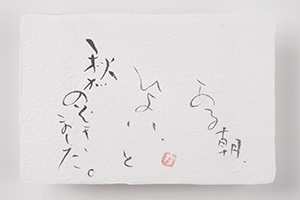 ある朝、
ひょいと
秋がのぞき
ました。